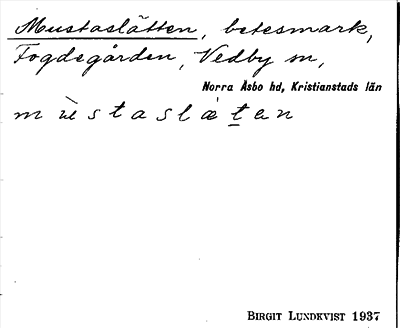 Mustaslätten, betesmark,
Fogdegården, Vedby sn,
Norra Åsbo hd, Kristianstads län
m ѝ s t a s l æ t e n
BIRGIT LUNDKVIST 1937